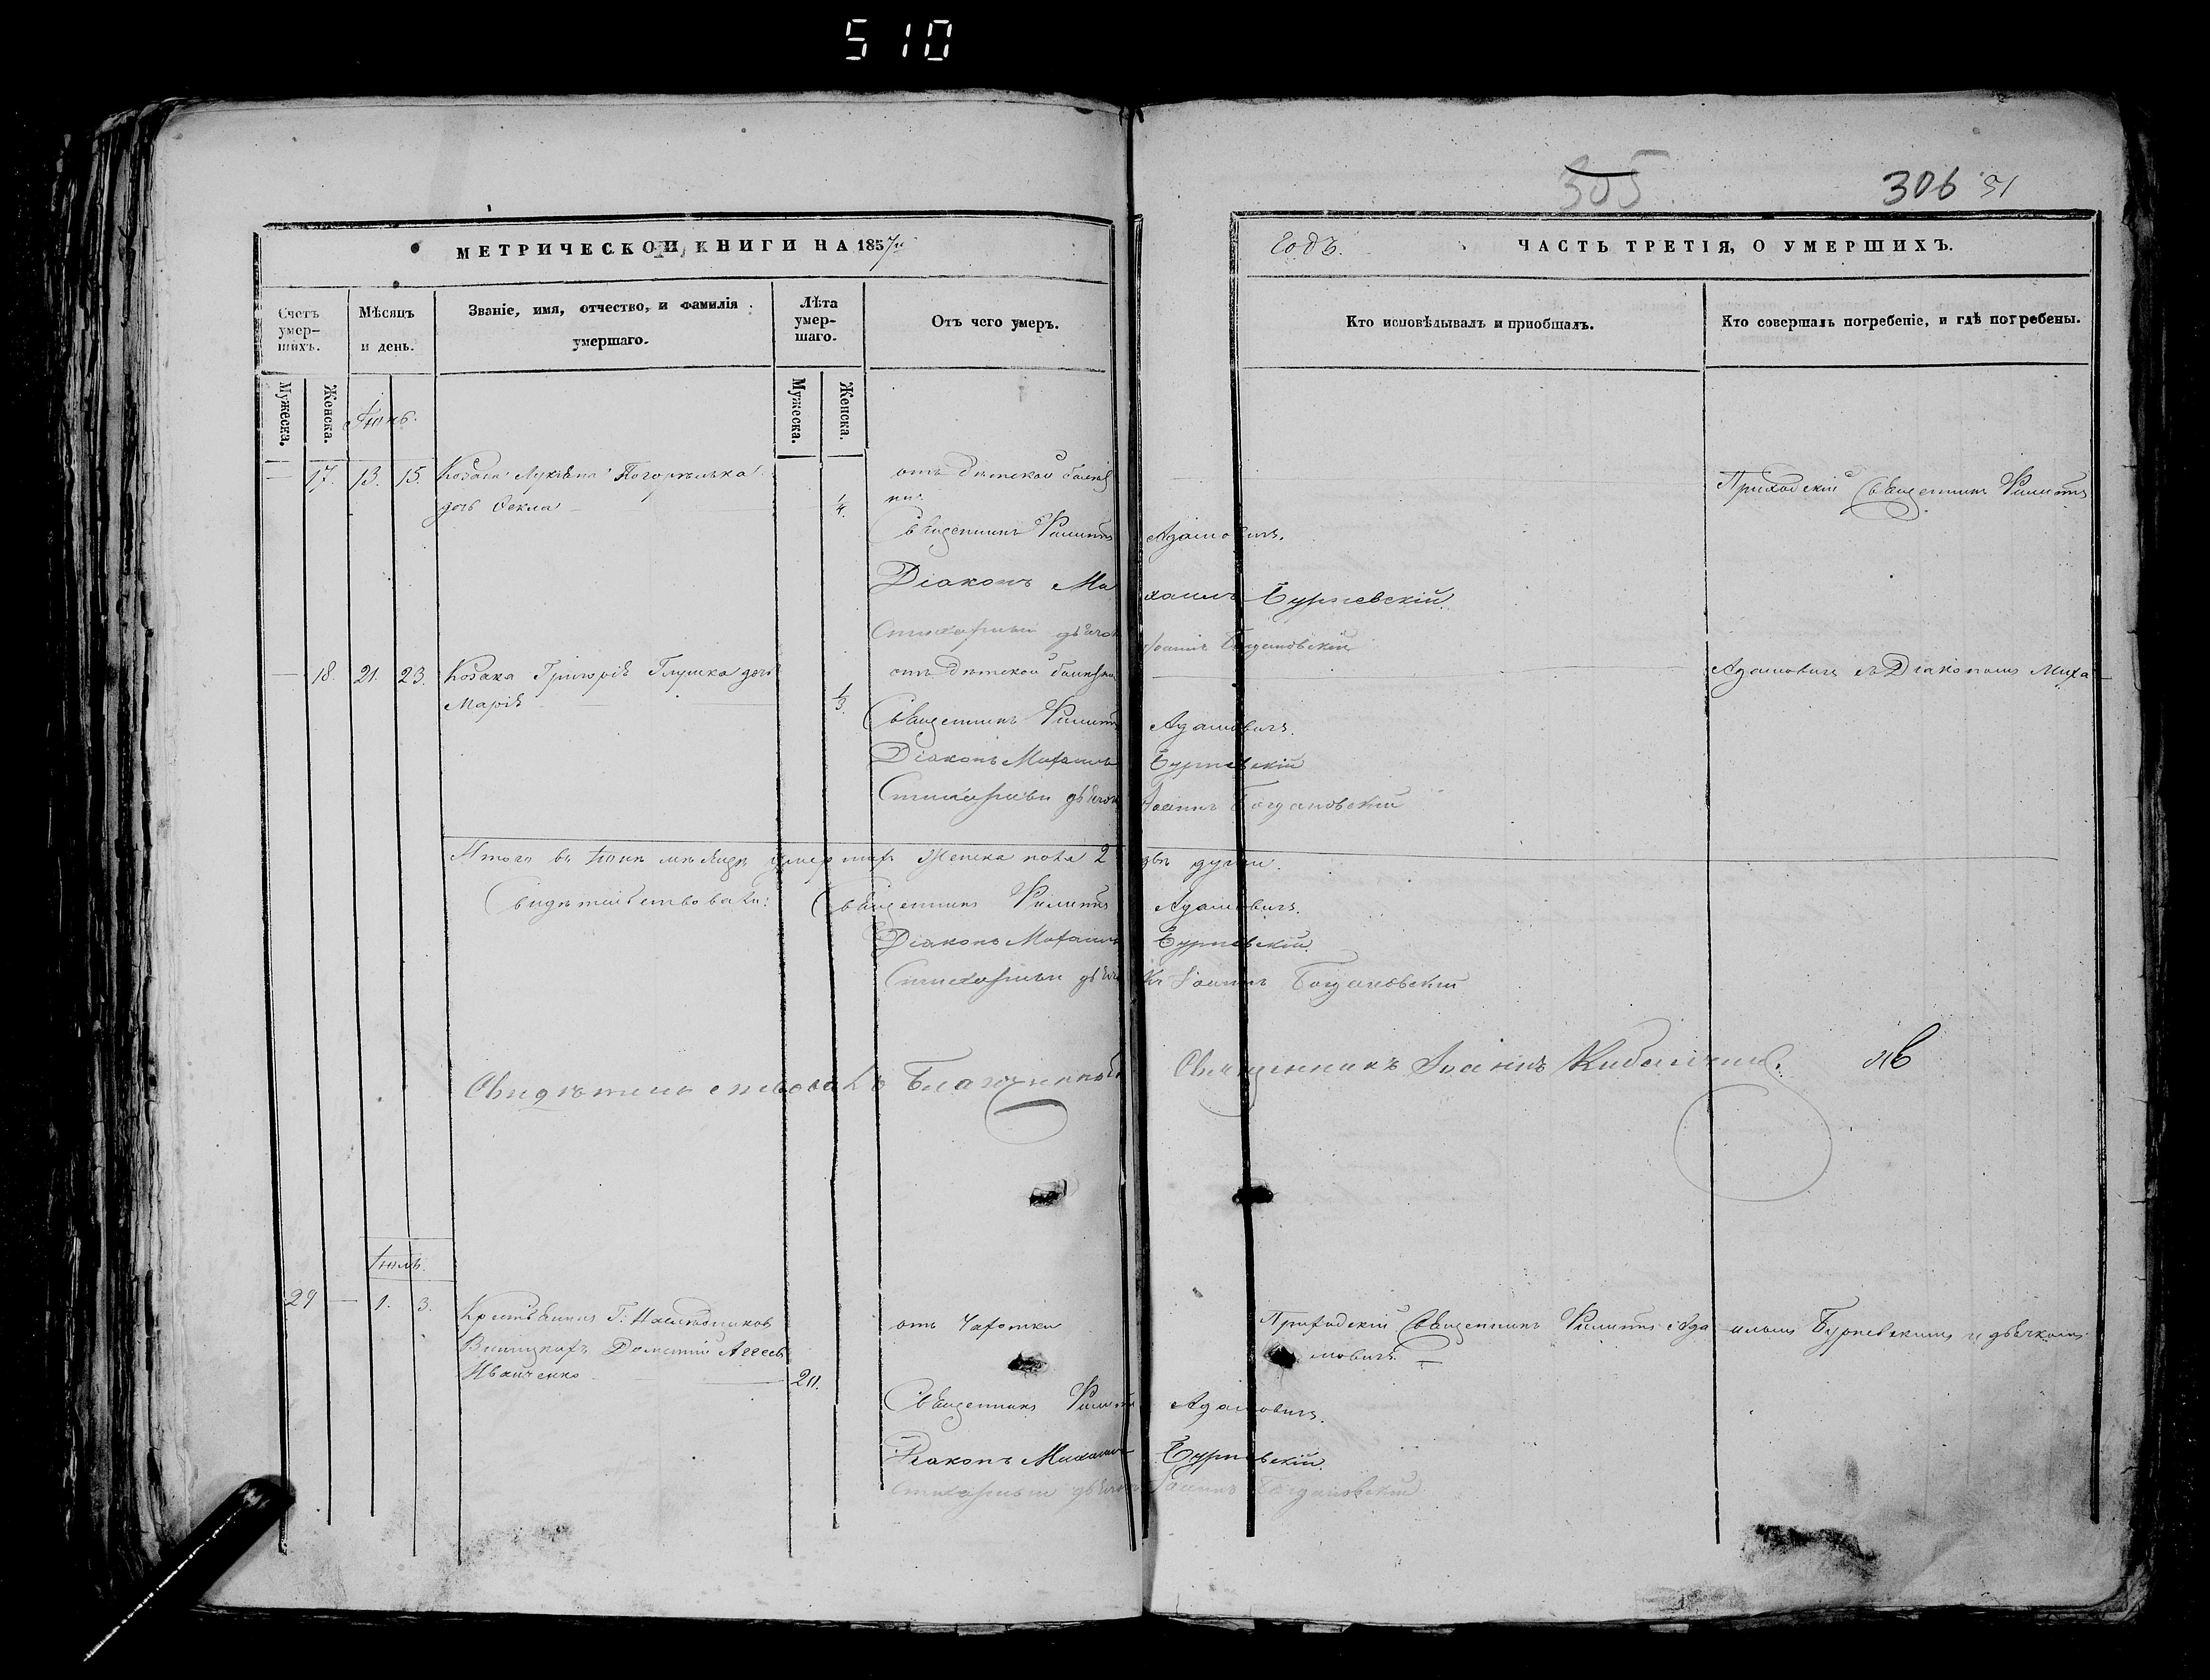 510
305
306 51
МЕТРИЧЕСКОЙ КНИГИ НА 1857й
Годъ.
ЧАСТЬ ТРЕТІЯ, О УМЕРШИХЪ.
Счетъ умер-
шихъ.
Мѣсяцъ
и день.
Званіе, имя, отчество, и фамилія
умершаго.
Лѣта
умер-
шаго.
Отъ чего умеръ.
Кто исповѣдывалъ и приобщалъ.
Кто совершалъ погребеніе, и гдѣ погребены.
Мужеска.
Женска.
Мужеска.
Женска.
Іюнь.
— 17. 13. 15. Козака Погорѣлька
дочь Фекла
1/4.
отъ дѣтской болѣз
ни.
Приходскій Священникъ Филиппъ
Священникъ Филиппъ Адамовичъ.
Діаконъ Михаилъ Бурневскій
Стихарный дьячокъ Іоаннъ Богдановскій
— 18. 21. 23. Козака Григорія Глушка дочь
Марія
1/3.
отъ дѣтской болѣзни
Адамовичъ съ Діакономъ Миха
Священникъ Филиппъ Адамовичъ.
Діаконъ Михаилъ Бурневскій
Стихарный дьячокъ Іоаннъ Богдановскій
Итого въ Іюнѣ мѣсяцѣ умершихъ Женска пола 2 двѣ души.
Свидѣтельствовали: Священникъ Филиппъ Адамовичъ.
Діаконъ Михаилъ Бурневскій.
Стихарный дьячокъ Іоаннъ Богдановскій
Свидѣтельствовалъ Благочинный Священникъ Іоаннъ
Іюль.
29 — 1. 3.
Домантій
Иванченко
20.
отъ Чахотки
Приходскій Священникъ Филиппъ Ада
мовичъ.
иломъ Бурневскимъ и дьячкомъ
Священникъ Филиппъ Адамовичъ.
Діаконъ Михаилъ Бурневскій.
Стихарный дьячокъ Іоаннъ Богдановскій